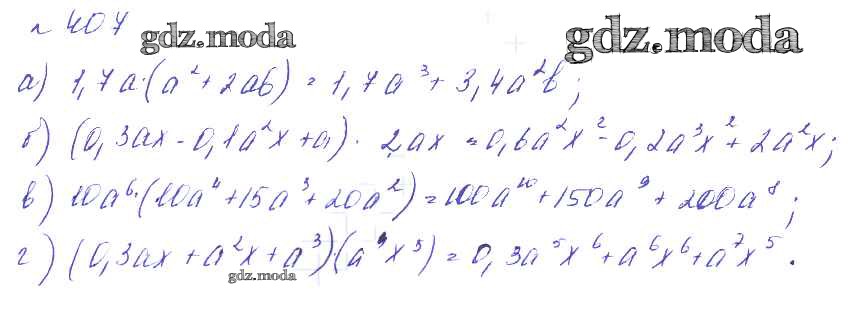 № 407
gdz.moda
gdz.moda
а) 1,7a·(a²+2ab) = 1,7a³+3,4a²b;
б) (0,3ax-0,1a²x+a)·2ax=0,6a²x²-0,2a³x²+2a²x;
в) 10a⁶·(10a⁴+15a³+20a²)=100a¹⁰+150a⁹+200a⁸;
г) (0,3ax+a²x+a³)·(a⁴x⁵)=0,3a⁵x⁶+a⁶x⁶+a⁷x⁵.
gdz.moda